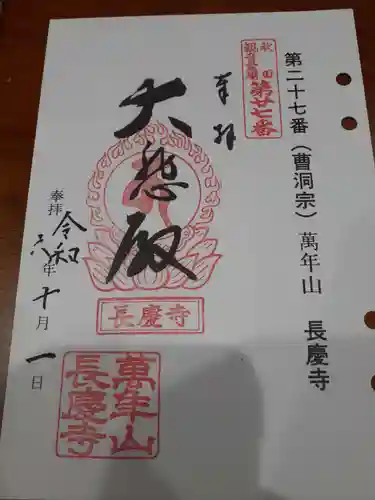 第二十七番（曹洞宗）萬年山　長慶寺
秋田
観音霊場
第廿七番
奉拝
大悲殿
長慶寺
奉拝　令和六年十月一日
萬年山
長慶寺